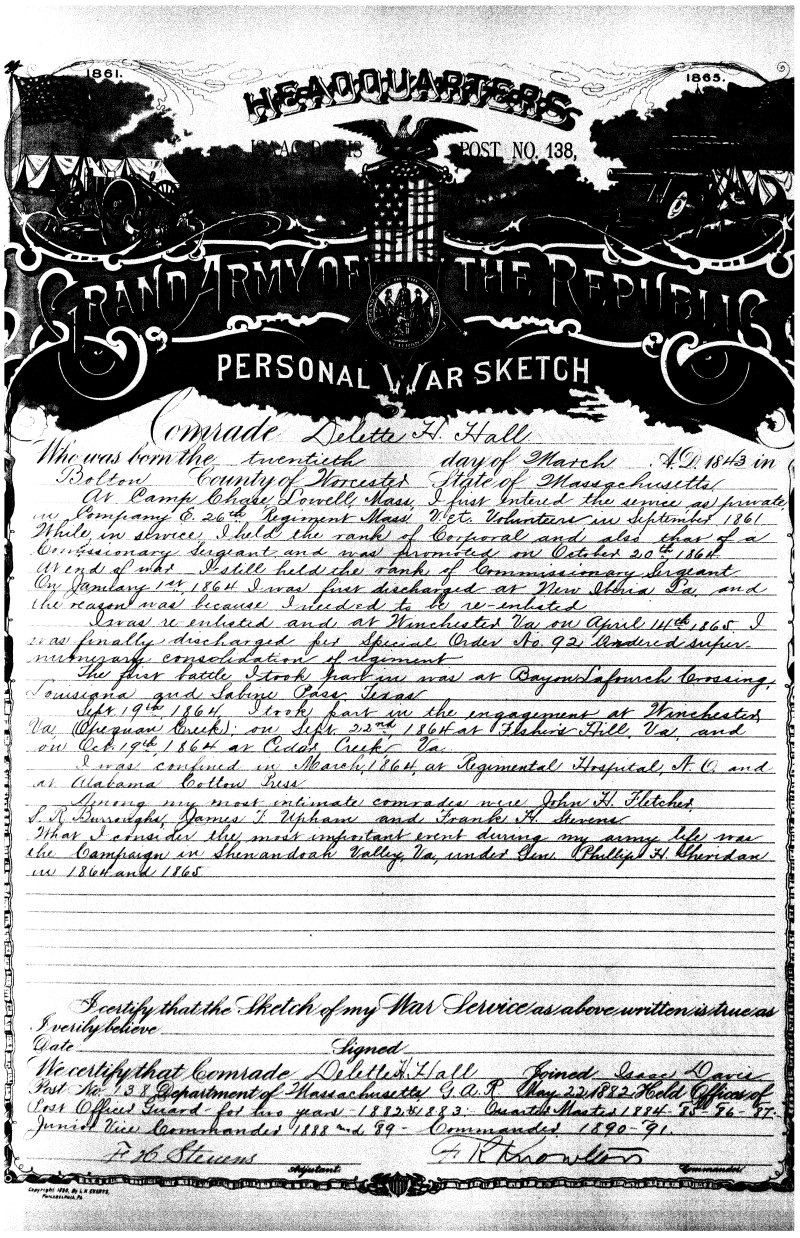 1861.
HEADQUARTERS
1865.
ISAAC DAVIS POST NO. 138,
GRAND ARMY OF THE REPUBLIC
PERSONAL WAR SKETCH
Comrade Delette H. Hall
Who was born the twentieth day of March A.D. 1843 in
Bolton County of Worcester State of Massachusetts
At Camp Chase Lowell, Mass, I first entered the service as private
in Company E. 26th Regiment Mass Vet. Volunteers in September 1861
While in service, I held the rank of Corporal and also that of a
Commissionary Sergeant and was promoted on October 20th 1864.
At end of war I still held the rank of Commissionary Sergeant
On January 1st 1864 I was first discharged at New Iberia La, and
the reason was because I needed to be re-enlisted
I was re enlisted and at Winchester Va on April 14th 1865. I
was finally discharged per Special Order No. 92 super-
numerary consolidation of regiment
The first battle I took part in was at Bayou Lafourch Crossing,
Louisiana and Sabine Pass, Texas
Sept 19th 1864 I took part in the engagement at Winchester,
Va, Opequan Creek); on Sept. 22nd, 1864 at Fishers Hill, Va, and
on Oct. 19th, 1864 at Cedar Creek Va.
I was confined in March, 1864, at Regimental Hospital, N.O. and
at Alabama Cotton Press
Among my most intimate comrades were John H. Fletcher,
S. R. Burroughs, James T. Upham and Frank H. Stevens
What I consider the most important event during my army life was
the Campaign in Shenandoah Valley, Va, under Gen. Phillip H. Sheridan
in 1864 and 1865
I certify that the Sketch of my War Service as above written is true as
I verily believe
Date Signed
We certify that Comrade Delette H. Hall Joined Isaac Davis
Post No. 138 Department of Massachusetts G.A.R May 22, 1882 Held Offices of
Post Officer Guard for two years - 1882 & 1883. Quarter Master 1884-85-86-87.
Junior Vice Commander 1888 and 89 - Commander 1890-91.
F H Stevens F R Knowlton
Adjutant. Commander
Copyright 1890, By L.H. Everts,
Philadelphia, Pa